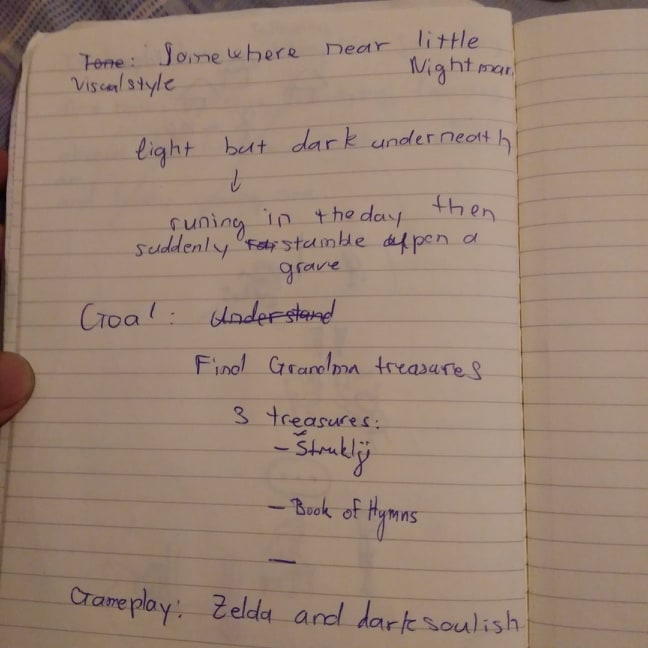 Tone: Somewhere near little
Visualstyle Nightmar
light but dark underneath
↓
runing in theday then
suddenly stumble upon a
grave
Goal: Understand
Find Grandma treasures
3 treasures:
- Štruklji
- Book of Hymns
-
Gameplay: Zelda and darksoulish